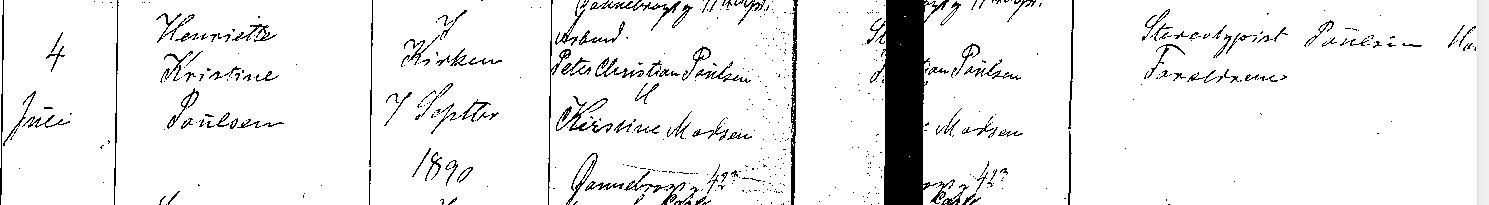 4
Juli
Henriette
Kristine
Poulsen
I
Kirken
7 Septbr
1890
Peter Christian Poulsen
U
Kirstine Madsen
Dannebrogsg 42
ian Poulsen
Madsen
42
Stereotypist Poulsen
Forældrene